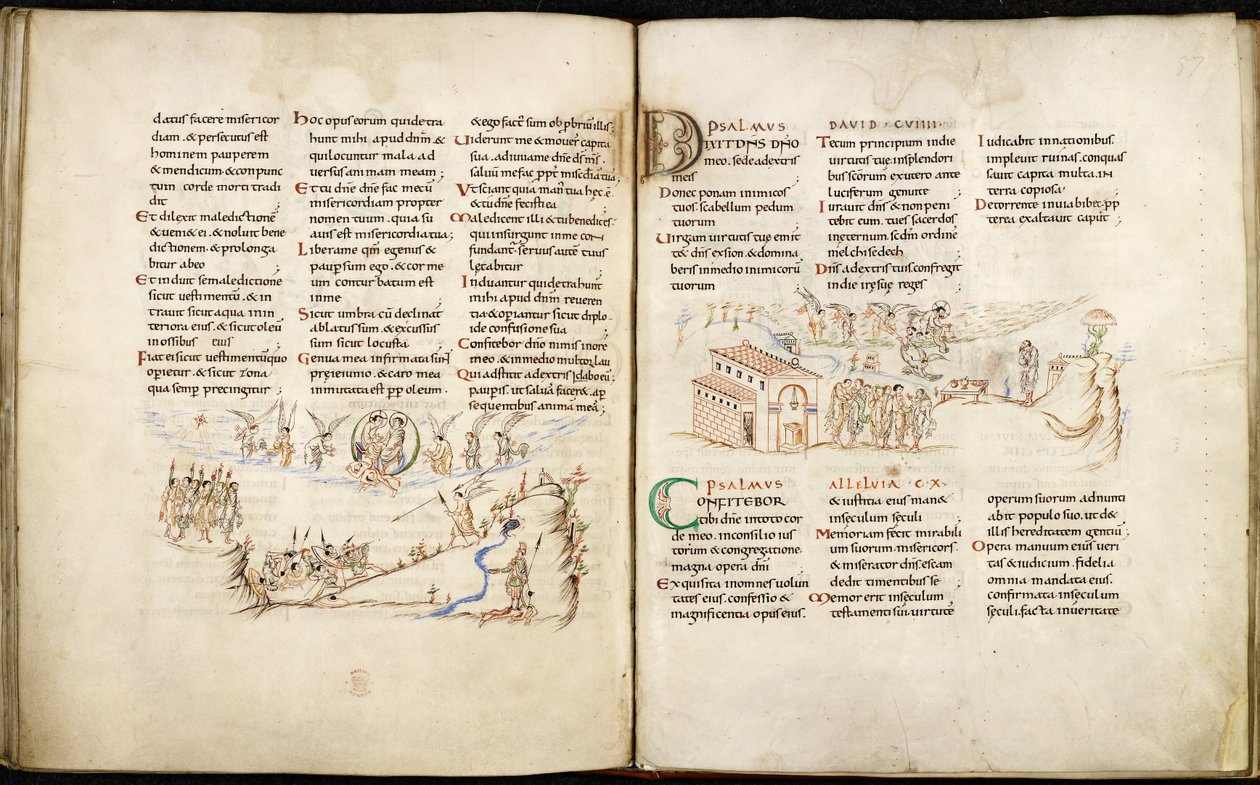 datus facere misericor
diam . & persecutus est
hominem pauperem
& mendicum & conpunc
tum corde morti tradi
dit ;
Et dilexit maledictionē
& veni& ei . & noluit bene
dictionem . & prolonga
bitur abeo ;
Et induit se maledictione
sicut vestimentū . & in
travit sicut aqua in in
teriora eius . & sicut oleū
in ossibus eius ;
Fiat ei sicut vestimentū quo
operietur . & sicut zona
qua semp precingitur ;
Hoc opus eorum qui detra
hunt mihi apud dnm̄ &
qui locuntur mala ad
versus animam meam ;
Et tu dnē dnē fac mecū
misericordiam propter
nomen tuum . quia su
avis est misericordia tua ;
Libera me qm̄ egenus &
paup sum ego . & cor me
um conturbatum est
in me ;
Sicut umbra cū declinat
ablatus sum . & excussus
sum sicut locusta
Genua mea infirmata sunt
pre ieiunio . & caro mea
inmutata est pp oleum .
& ego fact sum obpbriū illis ;
Viderunt me & mover capita
sua . adiuva me dnē ds ms .
salvū me fac ppt miscdiā tuā ;
Vt sciant quia man tua hęc .ē
& tu dnē fecisti ea
Maledicent illi & tu benedices .
qui insurgunt in me con
fundant . servus aute tuus
lętabitur
Induantur qui detrahunt
mihi apud dnm̄ reveren
tia & operiantur sicut diplo
ide confusione sua ;
Confitebor dnō nimis in ore
meo . & in medio multoꝝ lau
dabo eū ;
Qui adstitit a dextris
paupis . ut salvā facer& a p
sequentibus animā meā ;
57
PSALMVS DAVID · CVIIII ·
DIXIT DNS DNO
meo . sede a dextris
meis ;
Donec ponam inimicos
tuos . scabellum pedum
tuorum ;
Virgam virtutis tuę emit
t& dns̄ ex sion . & domina
beris in medio inimicorū
tuorum ;
Tecum principium in die
virtutis tuę . in splendori
bus scōrum ex utero ante
luciferum genui te ;
Iuravit dns̄ & non peni
tebit eum . tu es sacerdos
in eternum . secdm ordine
melchisedech ;
Dns̄ a dextris tuis . confregit
in die irę suę reges ;
Iudicabit in nationibus .
implevit ruinas . conquas
savit capita multa . in
terra copiosa ;
De torrente in via bibet . pp
terea exaltavit caput ;
PSALMVS ALLELVIA · CX ·
CONFITEBOR
tibi dnē in toto cor
de meo . in consilio ius
torum & congregatione .
magna opera dnī
Exquisita in omnes volun
tates eius . confessio &
magnificentia opus eius .
& iustitia eius man&
in sęculum sęculi ;
Memoriam fecit mirabili
um suorum . misericors .
& miserator dns̄ . escam
dedit timentibus se ;
Memor erit in sęculum
testamenti sui . virtutē
operum suorum adnunti
abit populo suo . ut d&
illis hereditatem gentiū ;
Opera manuum eius veri
tas & iudicium . fidelia
omnia mandata eius .
confirmata in sęculum
sęculi . facta in veritate